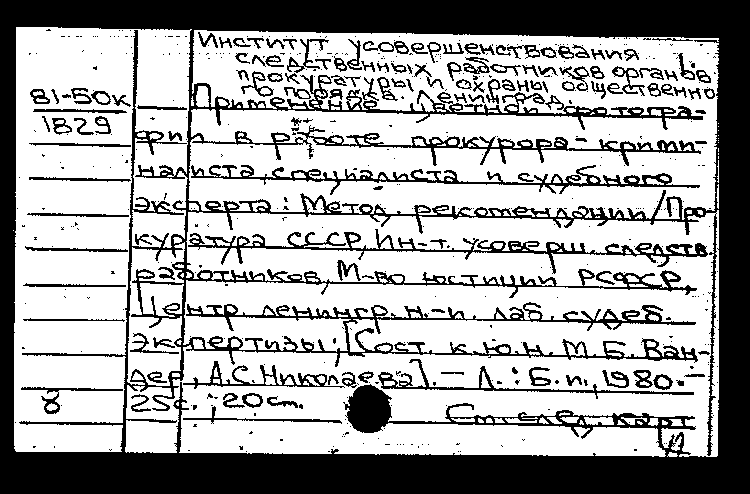 Институт усовершенствования
следственных работников органов
прокуратуры и охраны общественно
го порядка. Ленинград.
1.
81-50к
1829
Применение цветной фотогра-
фии в работе прокурора-крими-
налиста, специалиста и судебного
эксперта: Метод. рекомендации/Про-
куратура СССР, Ин-т. усоверш. следств.
работников, М-во юстиции РСФСР,
Центр. ленингр. н.-и. лаб. судеб.
экспертизы; [Сост. к.ю.н. М.Б. Ван-
дер, А.С. Николаева]. — Л.: Б.и., 1980. —
8
25с.; 20 см.
См. след. карт